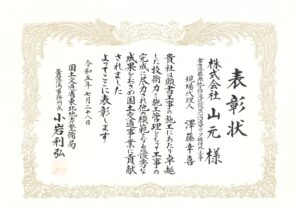 表彰状
株式会社 山元 様
現場代理人 澤藤幸喜
貴社は頭書工事の施工にあたり卓越
した技術力と施工管理をもって工事の
完成に尽力され他の模範となる優秀な
成果をおさめ国土交通事業に貢献
されました
よってここに表彰します
令和五年七月二十八日
国土交通省東北地方整備局
小岩利弘